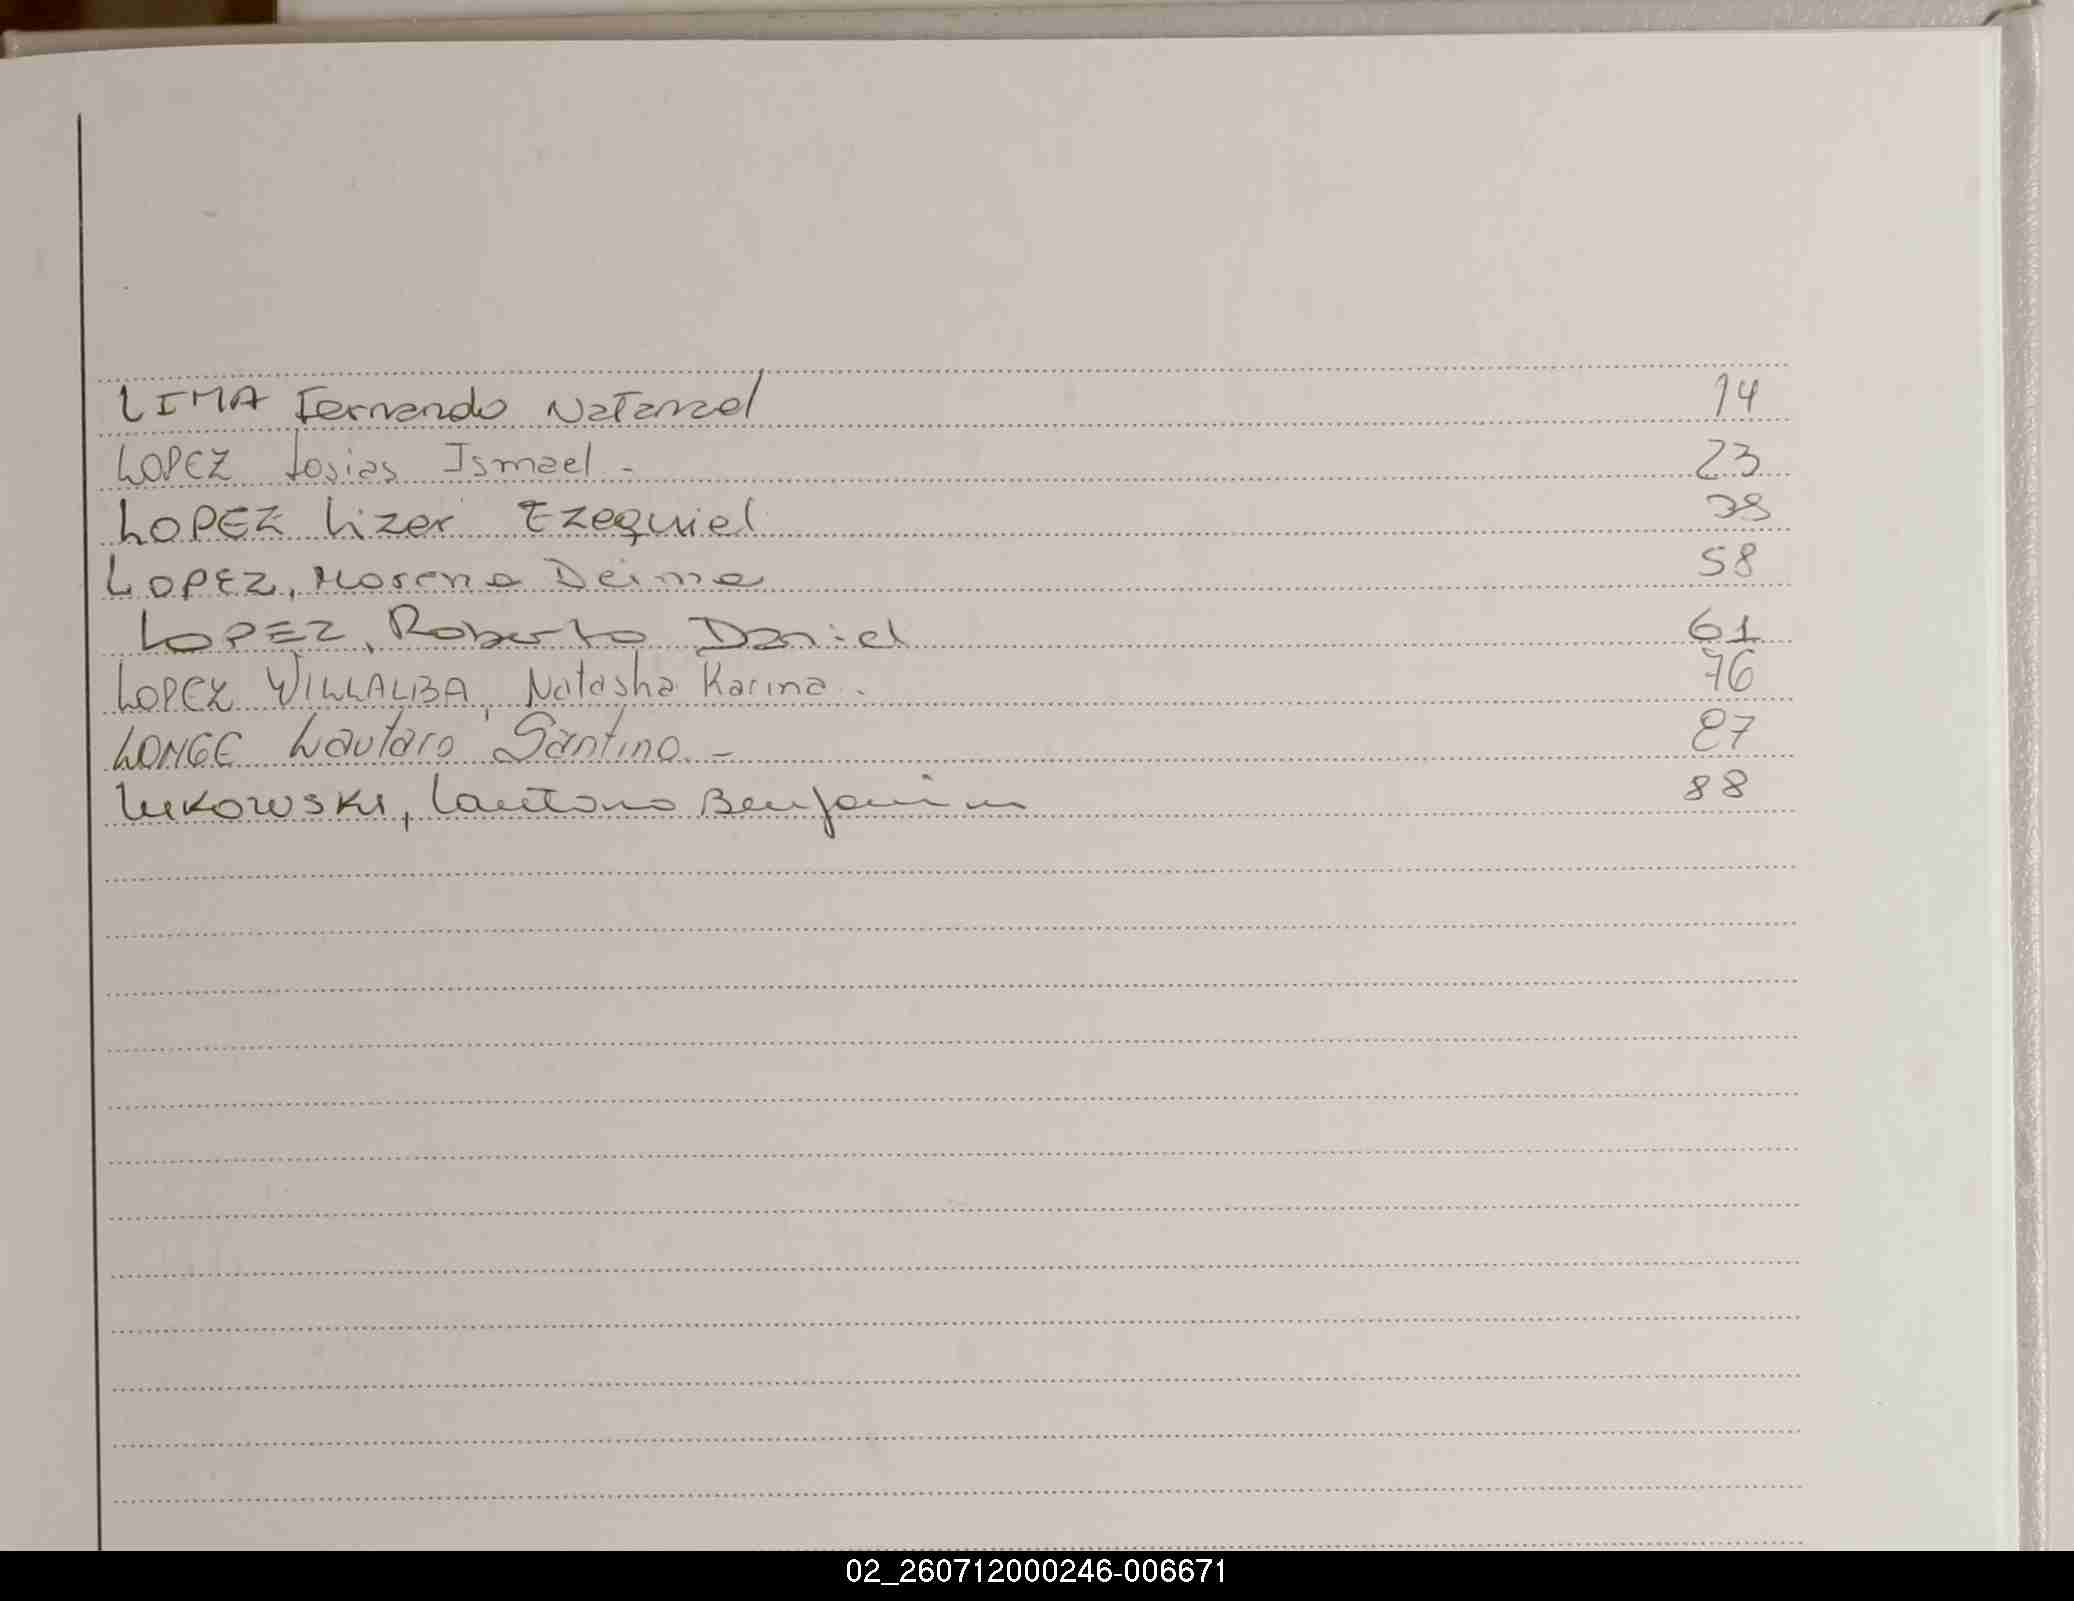 LIMA Fernando Natanael 14
LOPEZ Josias Ismael.- 23
LOPEZ Lizer Ezequiel 38
LOPEZ, Morena Deima 58
LOPEZ, Roberto Daniel 61
LOPEZ VILLALBA, Natasha Karina. 76
LONGE Lautaro Santino.- 87
Lukowski, Lautaro Benjamin 88
02_260712000246-006671